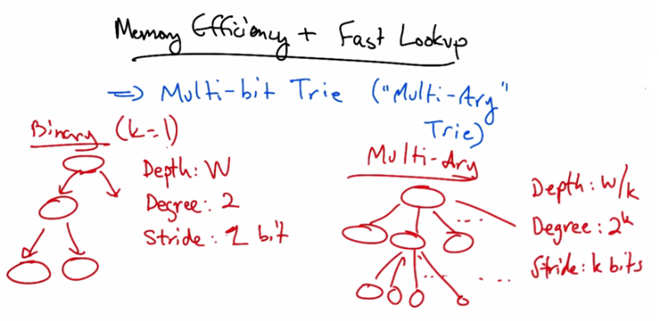 Memory Efficiency + Fast Lookup
=> Multi-bit Trie ("Multi-Ary"
Trie)
Binary (k=1)
Depth: W
Degree: 2
Stride: 1 bit
Multi-Ary
Depth: W/k
Degree: 2^k
Stride: k bits